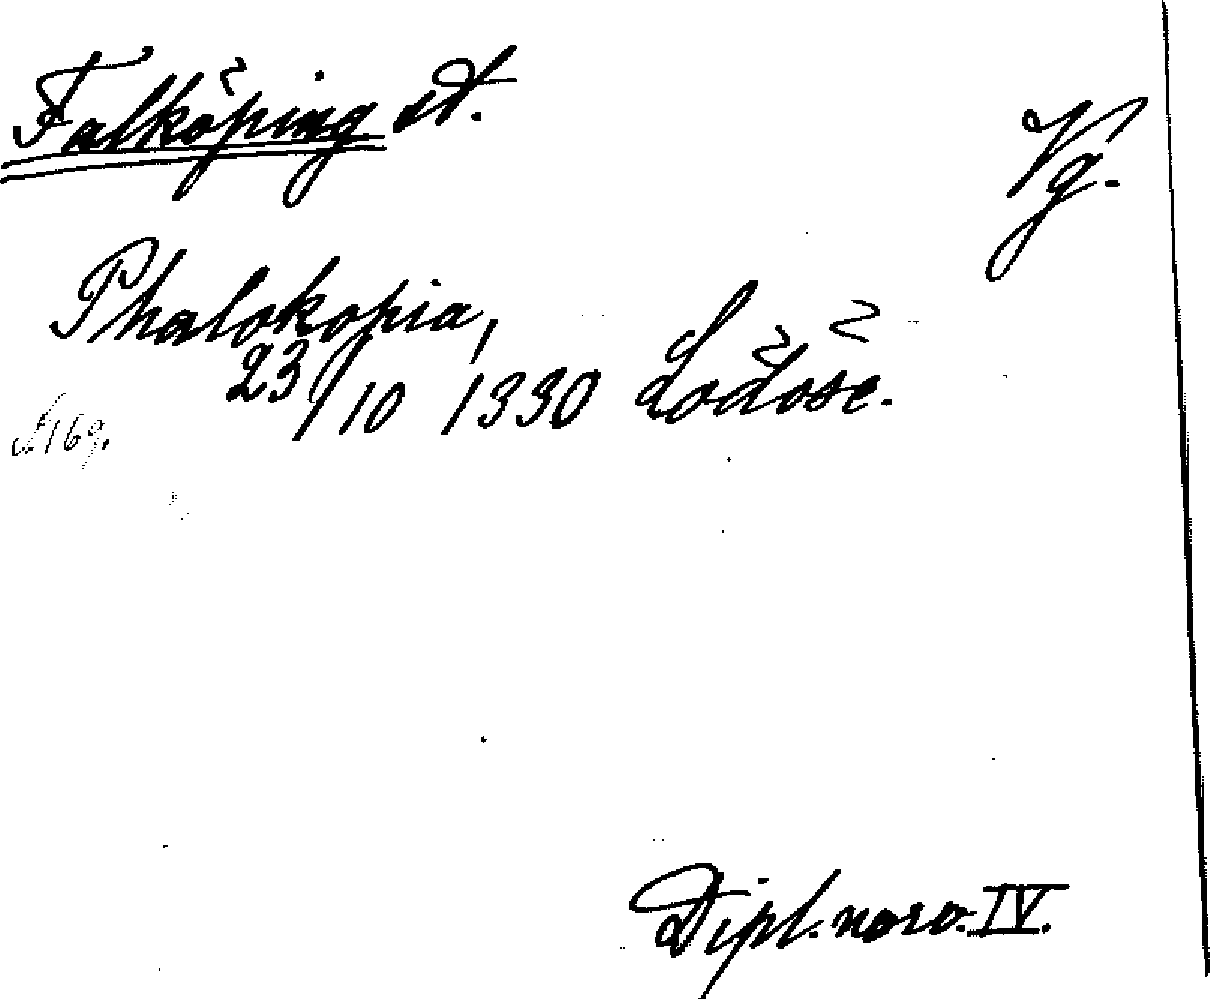 Falköping st.
Vg.
Phalokopia,
23/10 1330 Lödöse.
s. 169.
Dipl. norv. IV.